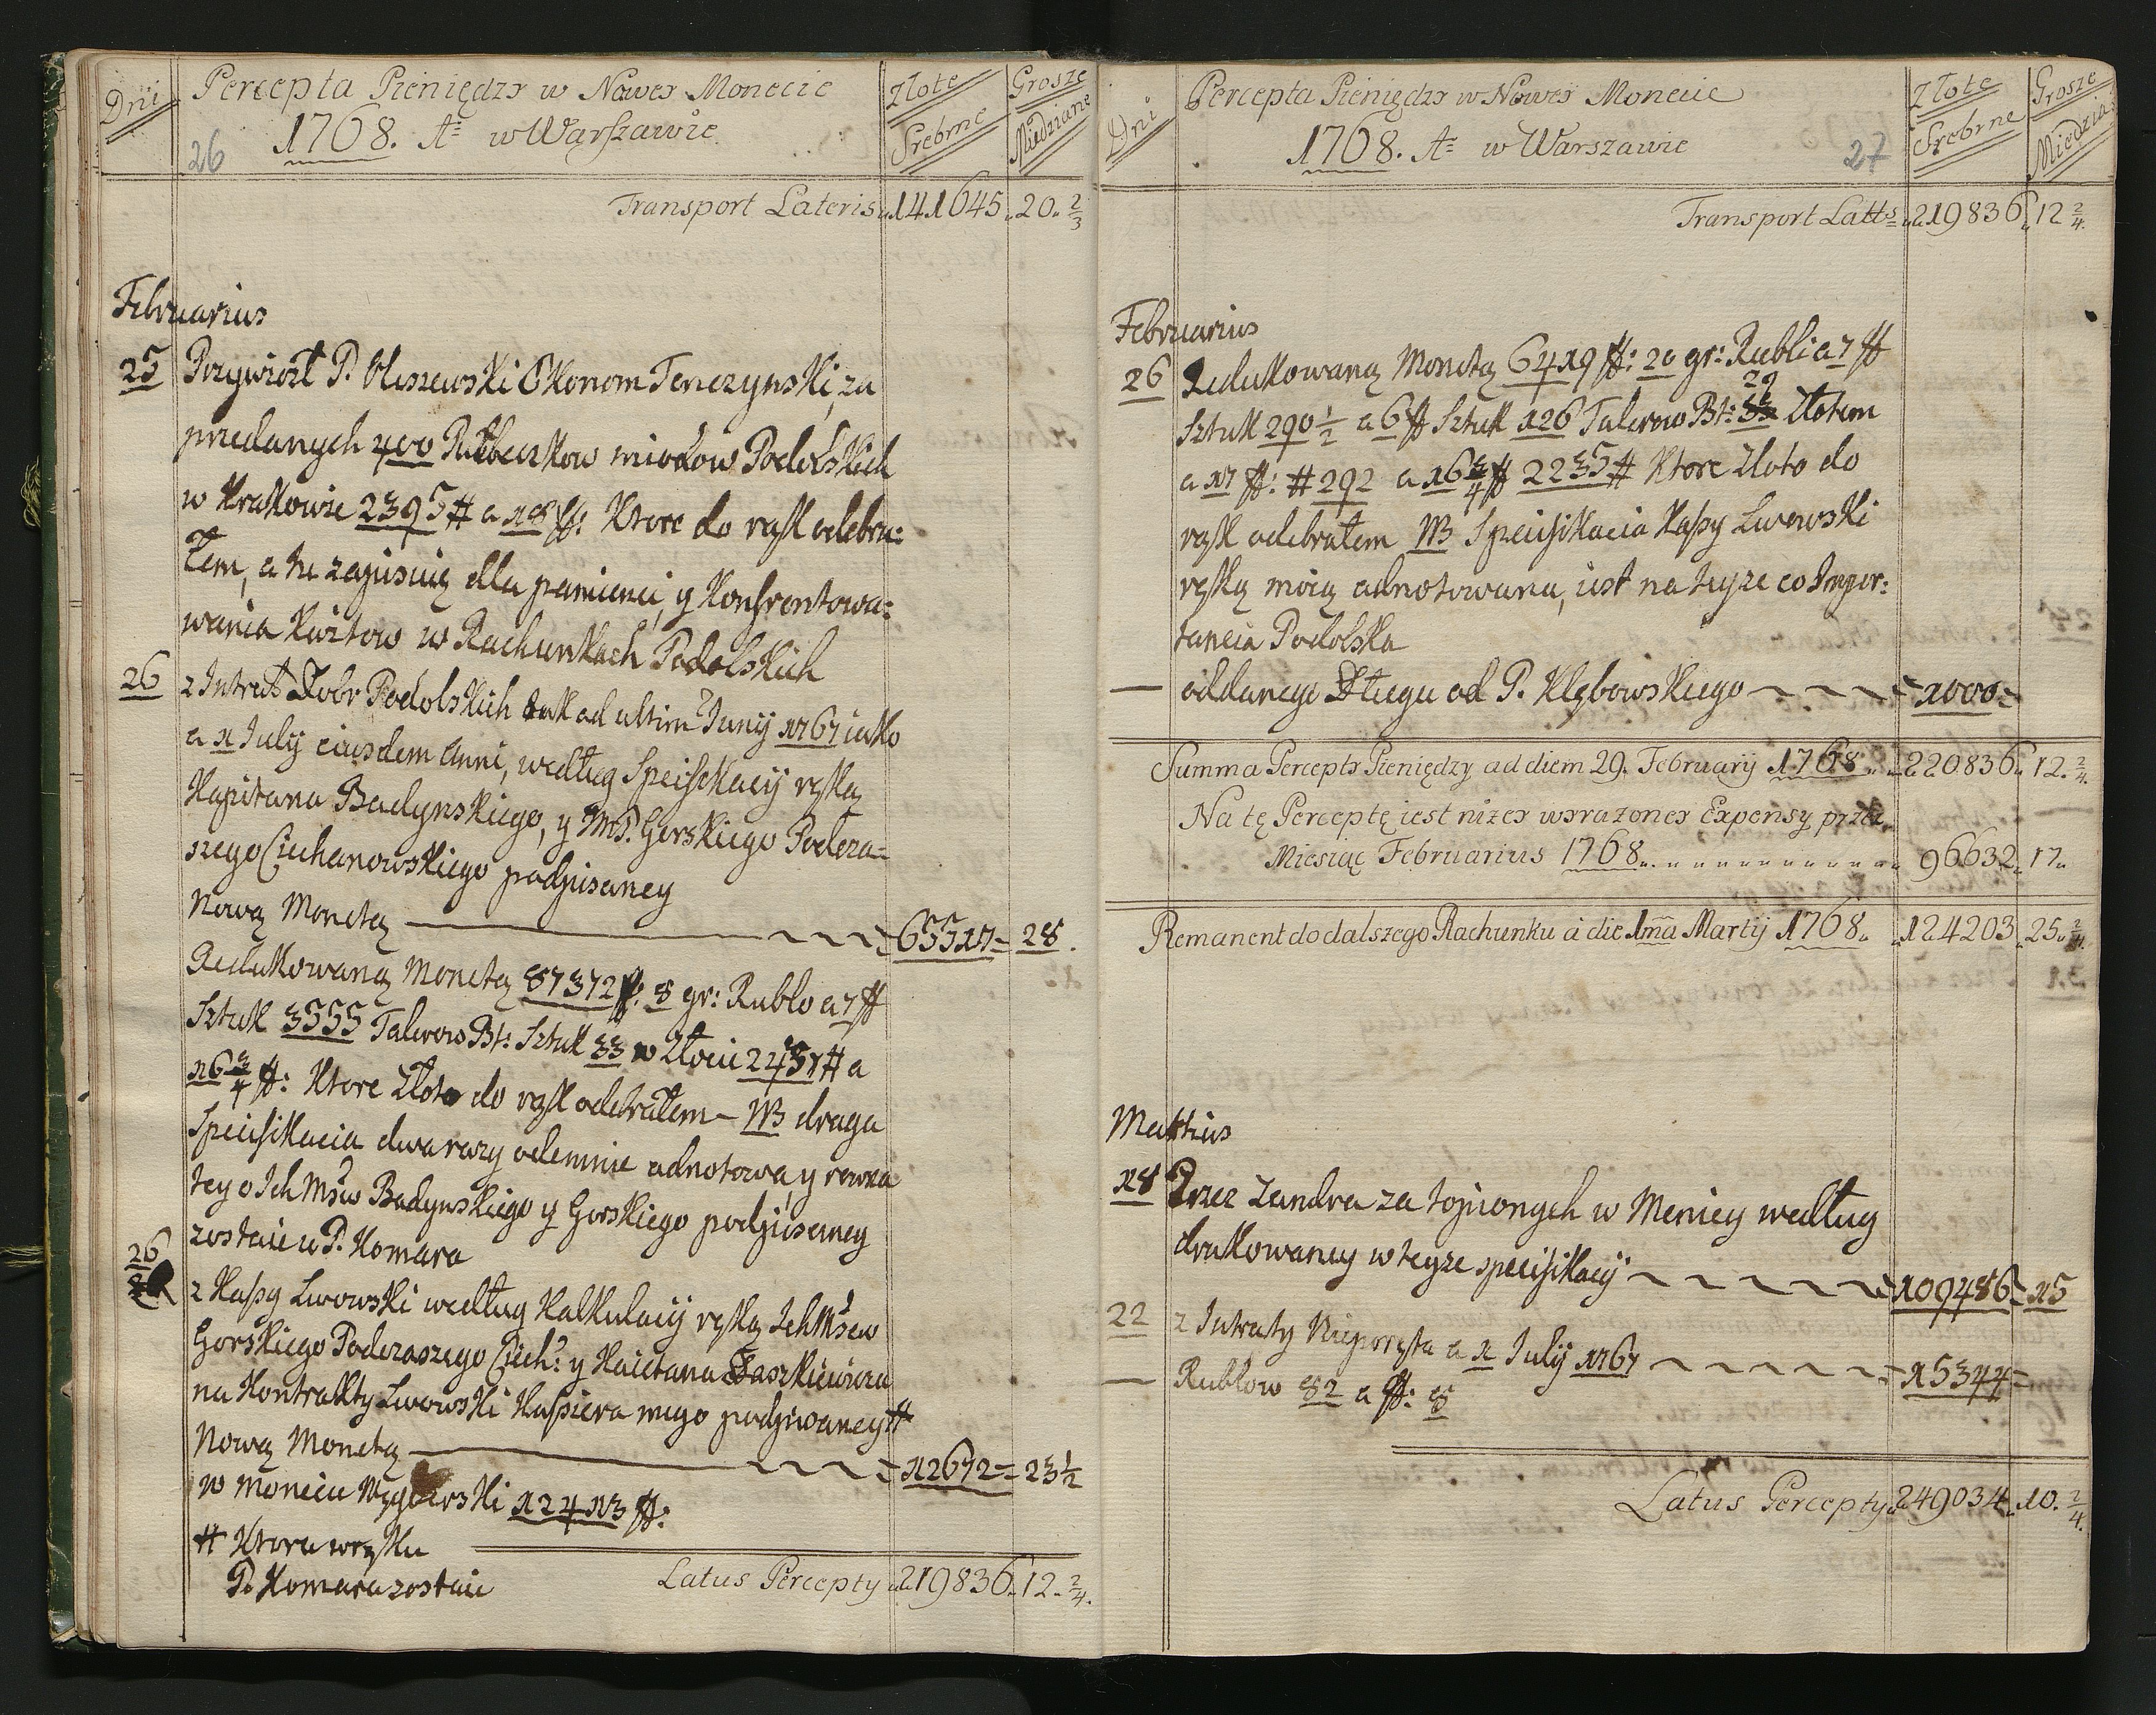 Dni
Percepta Pieniędzy w Nowey Monecie
Złote Srebrne
Grosze Miedziane
1768. A= w Warszawie
26
Transport Lateris 141645. 20. 2/3
Februarius
25 Przywiozł P. Oliszewski Ekonom Tenczynski, za
przedanych 400 miodow Podolskich
w Krakowie 2395 # a 18 ff: Ktore do rąk odebra:
łem, a tu zapisuię dla pamieci, y Konfrontowa:
wania Kwitow w Rachunkach Podolskich
26 z Intrat Dobr Podolskich tak ad ultim Junÿ 1767 iako
a 1 Julÿ eiusdem Anni, według Specifikacÿ ręką
Kapitana Badynskiego, y MP. Gorskiego Podcza=
szego Ciechanowskiego podpisaney
Nową Monetą 65517 = 28.
Redukowaną Monetą 87372 ff: 8 gr: Rublo a 7 ff
Sztuk 3555 Talerow Bt: Sztuk 33 w Złocie # a
16 3/4 ff: Ktore Złoto do rąk odebrałem – NB druga
Specifikacia dwa razy odemnie adnotowa, y rowna
tey o Ich Mśw Badynskiego y Gorskiego podpisaney
zostaie u P. Komara
26 z Kassy Lwowski według Kalkulacÿ ręką Ich Mśćw
Gorskiego Podczaszego Ciech: y Kaietana
na Kontrakty Lwowski Kassiera mego podpisaney #
Nową Monetą = 12672 = 23 1/2
w Monecie 12413 ff:
# Ktora w ręku
P. Komara zostaie
Latus Percepty 219836. 12. 2/4.
Dni
Percepta Pieniędzy w Nowey Monecie
Złote Srebrne
Grosze
1768. A= w Warszawie
27
Transport Latts 219836. 12 2/4.
Februarius
26 Redukowaną Monetą 6419 ff: 20 gr: Rubli a 7 ff
Sztuk 290 1/2 a 6 ff Sztuk 126 Talerow Bt: Złotem
a 17 ff: # 292 a 16 3/4 ff 2235 # Ktore Złoto do
rąk odebrałem NB Specifikacia Kassy Lwowski
ręką moią adnotowana, iest na teyze co Impor:
tancia Podolska
— oddanego Długu od P. Klębowskiego = 1000 =
Summa Percepty Pieniędzy ad diem 29. Februarÿ 1768. 220836. 12. 2/4.
Na tę Perceptę iest nizey wyrazoney Expensy przez
Miesiąc Februarius 1768. 96632. 17.
Remanent do dalszego Rachunku à die 1ma Martÿ 1768. 124203. 25. 2/4.
Martius
18 Przez Zandra za topionych w Menicy według
drukowaney w teyze specifikacÿ = 109486 = 15
22 z Intraty Nieporęta a 1 Julÿ 1767 = 15344 =
— Rublow 82 a ff: 8
Latus Percepty 249034. 10. 2/4.